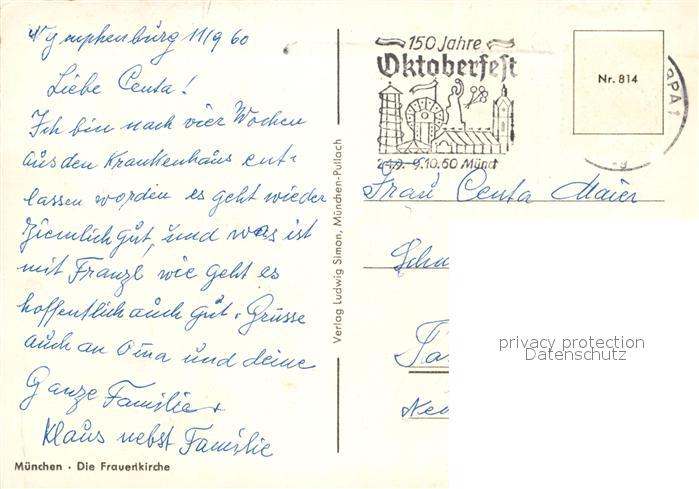 Nymphenburg 11/9 60
Liebe Centa!
Ich bin nach vier Wochen
aus den Krankenhaus ent-
lassen worden es geht wieder
ziemlich gut, und was ist
mit Franzl wie geht es
hoffentlich auch gut. Grüsse
auch an Oma und deine
Ganze Familie
Klaus nebst Familie
München · Die Frauenkirche
Verlag Ludwig Simon, München-Pullach
150 Jahre
Oktoberfest
24.9.-9.10.60 Münch
Nr. 814
Frau Centa Maier
privacy protection
Datenschutz